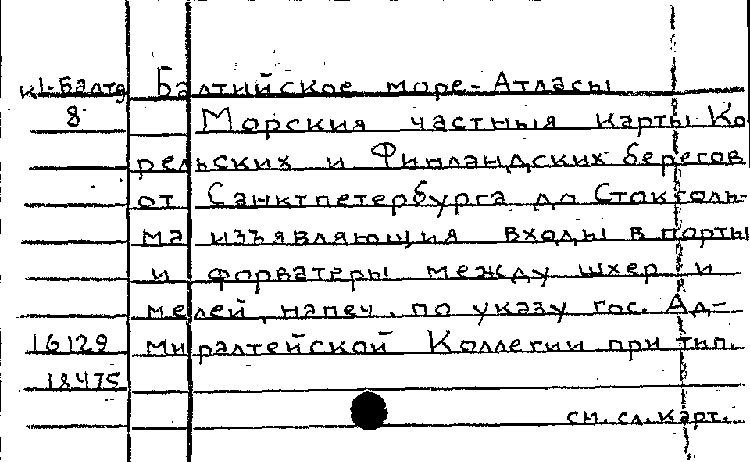 К1-Балтд Балтийское море-Атласы
8 Морския частныя карты Ко
рельских и Финландских берегов
от Санктпетербурга до Стокголь-
ма изъявляющия входы в порты
и форватеры между шхер и
мелей, напеч. по указу гос. Ад-
16129 миралтейской Коллегии при тип.
18475
см. сл. карт.